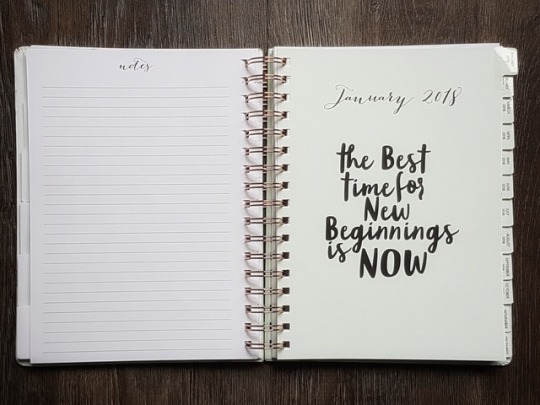 notes
January 2018
the Best
time for
New
Beginnings
is NOW